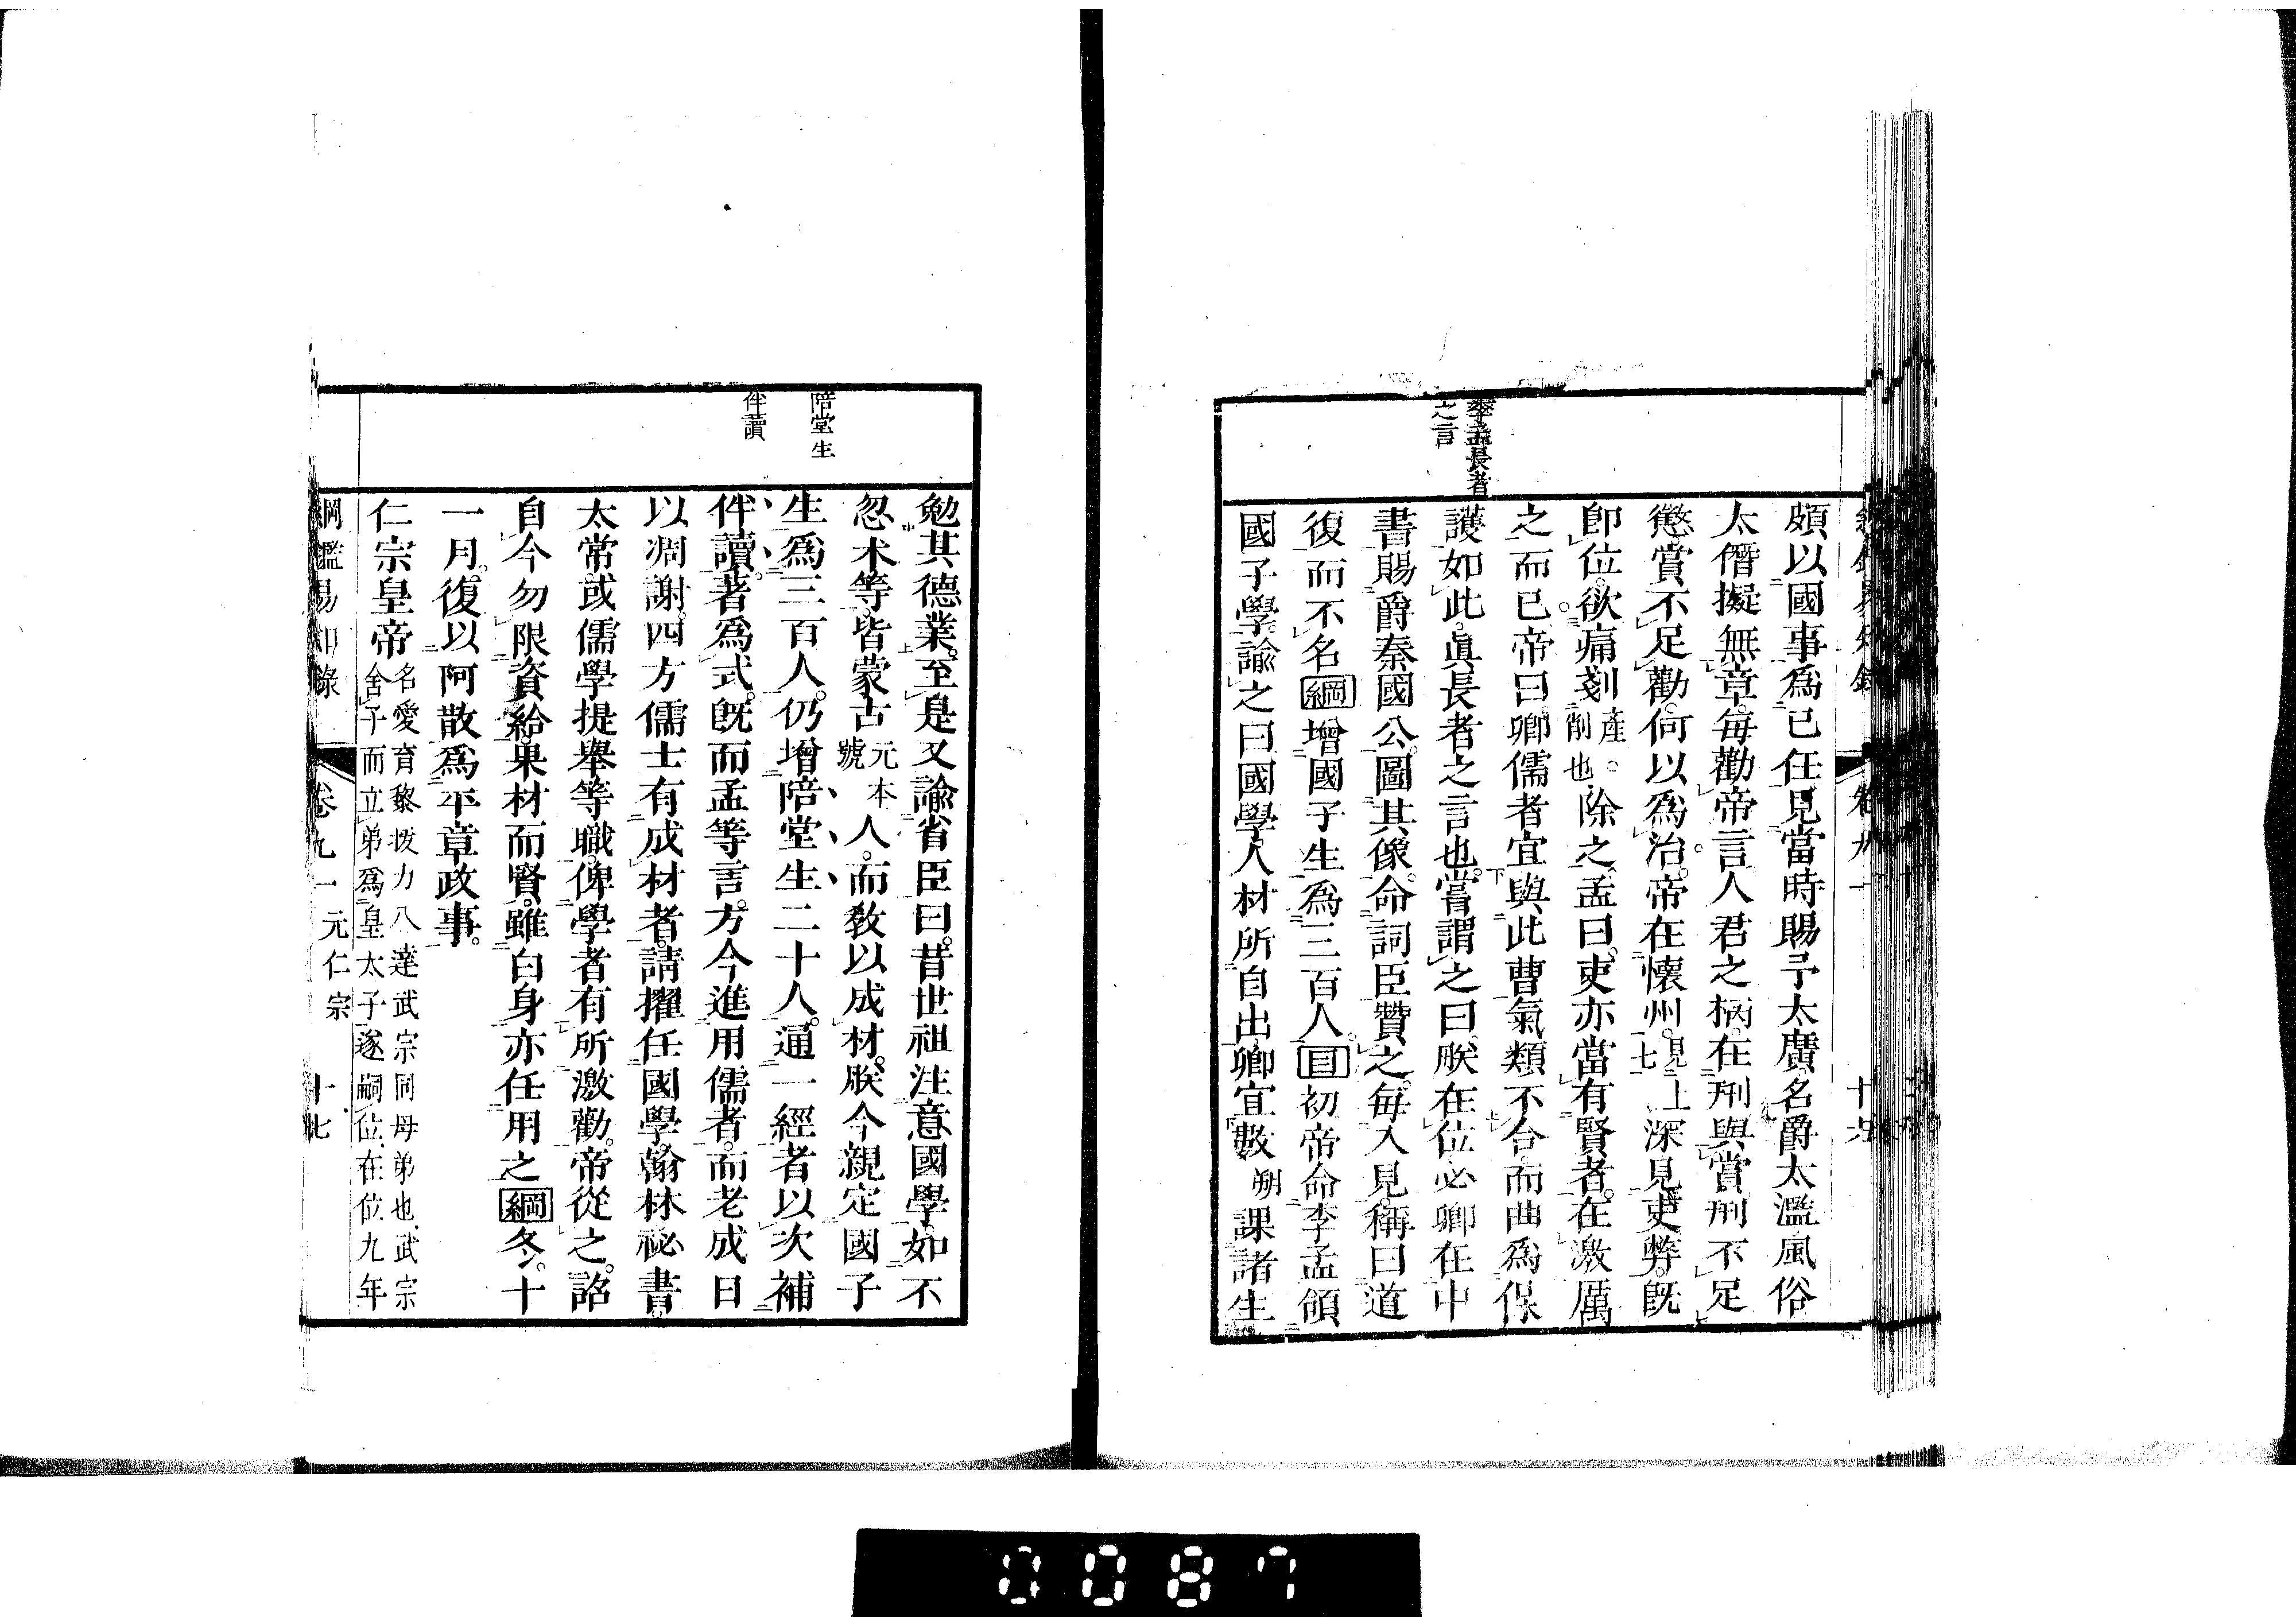 李孟長者
之言
頗以國事爲已任見當時賜予太廣名爵太濫風俗
太僭擬無章每勸帝言人君之柄在刑與賞刑不足
懲賞不足勸何以爲治帝在懷州見上七深見吏弊既
卽位欲痛剗產削也除之孟曰吏亦當有賢者在激厲
之而已帝曰卿儒者宜與此曹氣類不合而曲爲保
護如此眞長者之言也嘗謂之曰朕在位必卿在中
書賜爵秦國公圖其像命詞臣贊之每入見稱曰道
復而不名綱增國子生爲三百人目初帝命李孟領
國子學諭之曰國學人材所自出卿宜數朔課諸生
陪堂生
伴讀
勉其德業至是又諭省臣曰昔世祖注意國學如不
忽木等皆蒙古元本號人而敎以成材朕今親定國子
生爲三百人仍增陪堂生二十人通一經者以次補
伴讀著爲式既而孟等言方今進用儒者而老成日
以凋謝四方儒士有成材者請擢任國學翰林祕書
太常或儒學提舉等職俾學者有所激勸帝從之詔
自今勿限資給果材而賢雖白身亦任用之綱冬十
一月復以阿散爲平章政事
仁宗皇帝名愛育黎拔力八達武宗同母弟也武宗舍子而立弟爲皇太子遂嗣位在位九年
綱鑑易知錄 卷九一 元仁宗 十七
0087